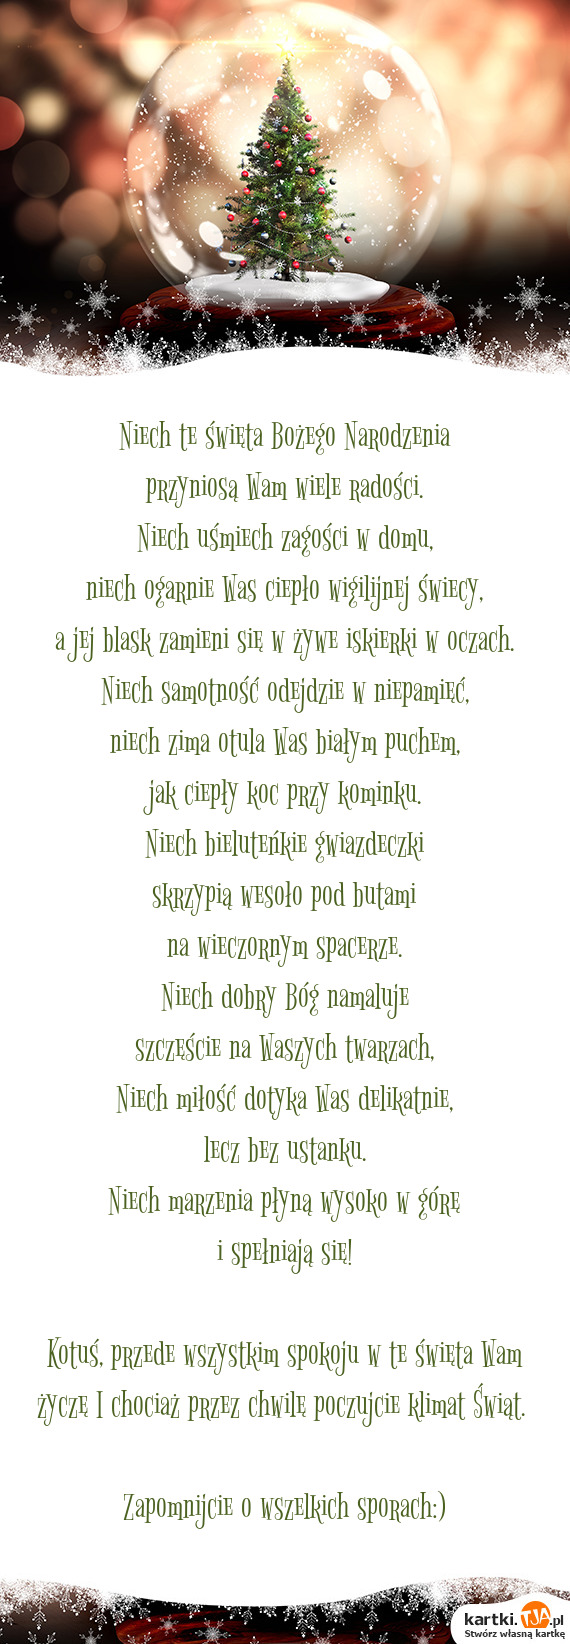 Niech te święta Bożego Narodzenia
przyniosą Wam wiele radości.
Niech uśmiech zagości w domu,
niech ogarnie Was ciepło wigilijnej świecy,
a jej blask zamieni się w żywe iskierki w oczach.
Niech samotność odejdzie w niepamięć,
niech zima otula Was białym puchem,
jak ciepły koc przy kominku.
Niech bieluteńkie gwiazdeczki
skrzypią wesoło pod butami
na wieczornym spacerze.
Niech dobry Bóg namaluje
szczęście na Waszych twarzach,
Niech miłość dotyka Was delikatnie,
lecz bez ustanku.
Niech marzenia płyną wysoko w górę
i spełniają się!
Kotuś, przede wszystkim spokoju w te święta Wam
życzę I chociaż przez chwilę poczujcie klimat Świąt.
Zapomnijcie o wszelkich sporach:)
kartki.TJA.pl
Stwórz własną kartkę